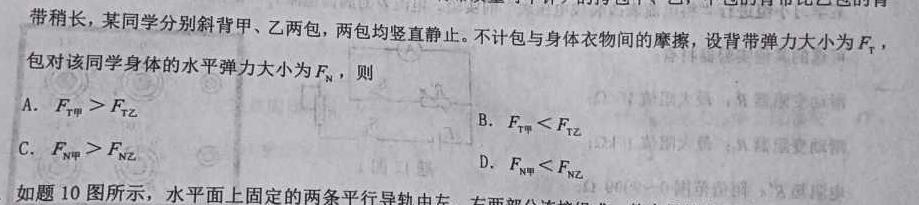 带稍长，某同学分别斜背甲、乙两包，两包均竖直静止。不计包与身体衣物间的摩擦，设背带弹力大小为F_T，
包对该同学身体的水平弹力大小为F_N，则
A. F_T甲 > F_T乙
B. F_T甲 < F_T乙
C. F_N甲 > F_N乙
D. F_N甲 < F_N乙
如题 10 图所示，水平面上固定的两条平行导轨由左